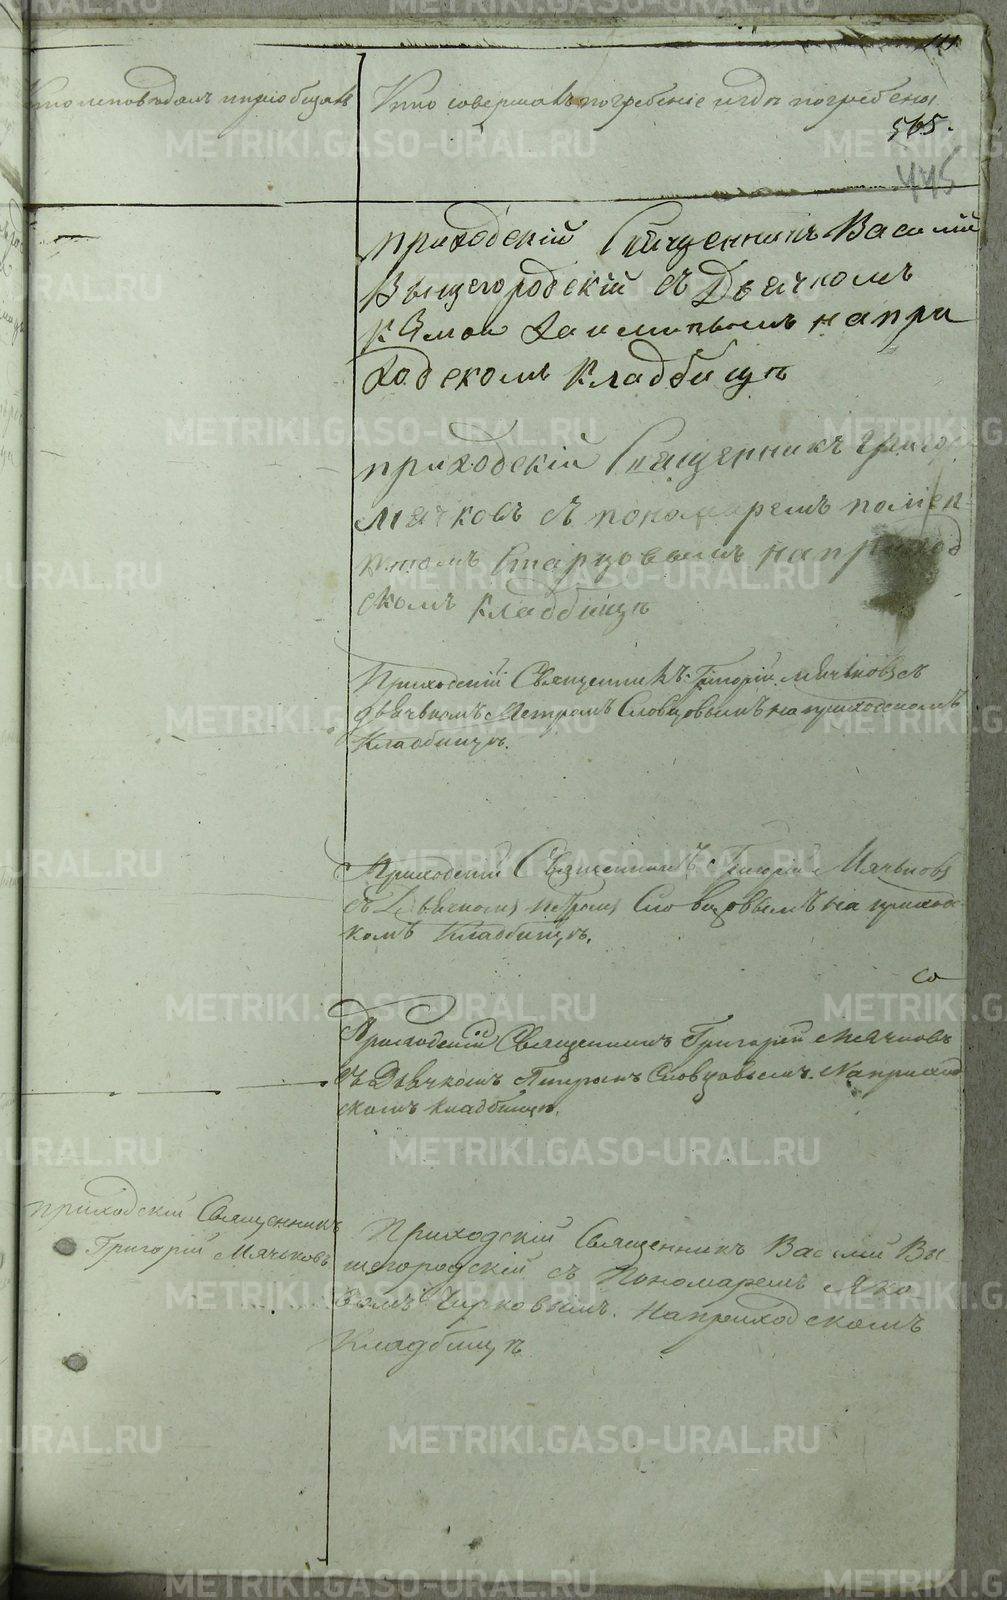 Кто исповѣдалъ и приобщалъ
Кто совершалъ погребеніе и гдѣ погребены
565.
445
приходскій Священникъ Василій
Вышегородскій съ Дьячкомъ
на при
ходскомъ кладбищѣ
приходскій Священникъ Григорій
Мячковъ съ пономаремъ
Старцовымъ на приход
скомъ кладбищѣ
Приходскій Священникъ Григорій Мячьковъ съ
дьячькомъ Петромъ Словцовымъ на приходскомъ
Кладбищѣ.
Приходскій Священникъ Григорій Мячьковъ
съ Дьячкомъ Петромъ Словцовымъ на приход-
комъ Кладбищѣ.
со
Приходскій Священникъ Григорій Мячковъ
съ Дьячкомъ Петромъ Словцовымъ. На приход
скомъ кладбищѣ.
приходскій Священникъ
Григорій Мячьковъ
Приходскій Священникъ Василій Вы
шегородскій съ Пономаремъ Яко
вомъ Чирковымъ. На приходскомъ
Кладбищѣ
METRIKI.GASO-URAL.RU